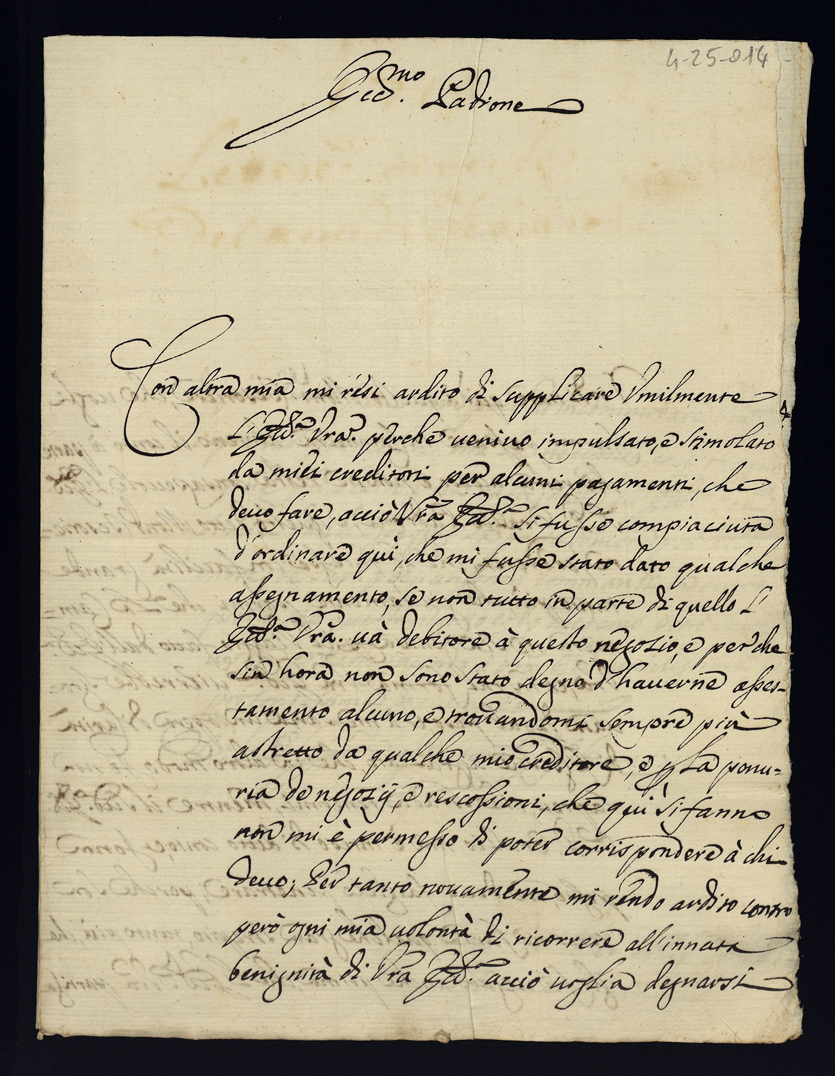 4-25-014
Ecc.mo Padrone
Con altra mia mi resi ardito di supplicare Vmilmente
L'Ecc.a Vra. perche venivo impulsato, e stimolato
da miei creditori per alcuni pagamenti, che
devo fare, acciò Vra Ecc.a si fusse compiaciuta
d'ordinare qui, che mi fusse stato dato qualche
assegnamento, se non tutto in parte di quello L'
Ecc.a Vra. và debitore à questo negozio, e perche
sin hora non sono stato degno d'haverne asses-
tamento alcuno, e trovandomi sempre più
astretto da qualche mio creditore, e p La penu-
ria de negozij, e rescossioni, che quì si fanno
non mi è permesso di poter corrispondere à chi
devo; Per tanto novamente mi rendo ardito contro
però ogni mia volontà di ricorrere all'innata
benignità di Vra Ecc.a acciò voglia degnarsi